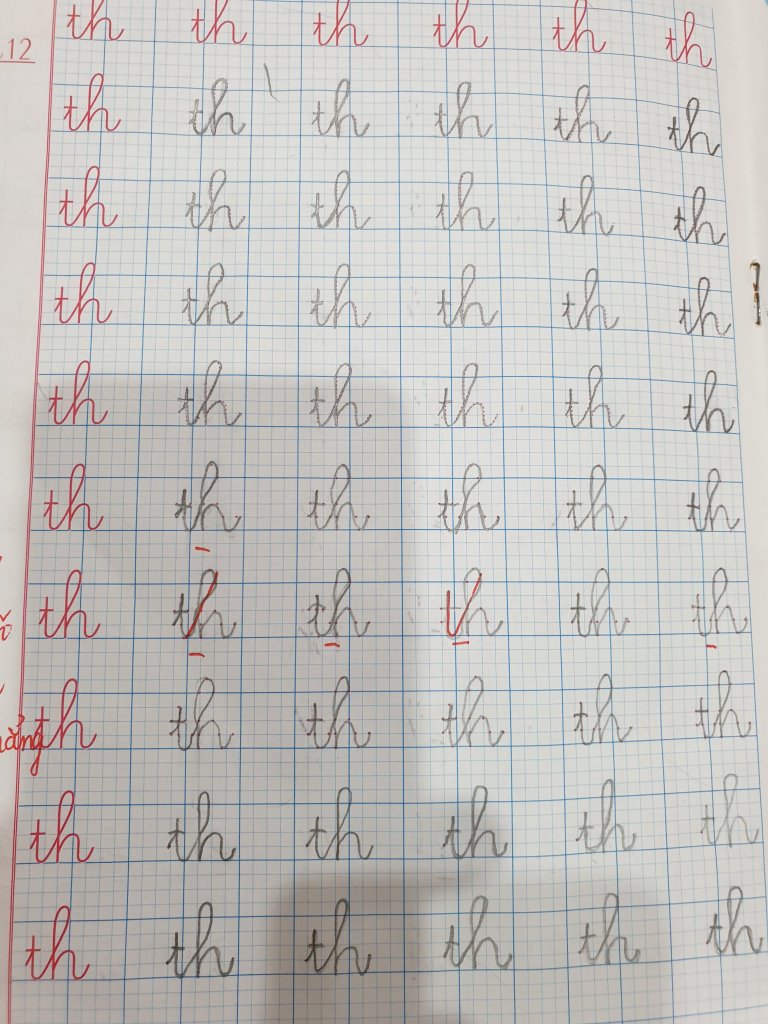 .12
th th th th th th
th th th th th th
th th th th th th
th th th th th th
th th th th th th
th th th th th th
th th th th th th
th th th th th th
th th th th th th
th th th th th th